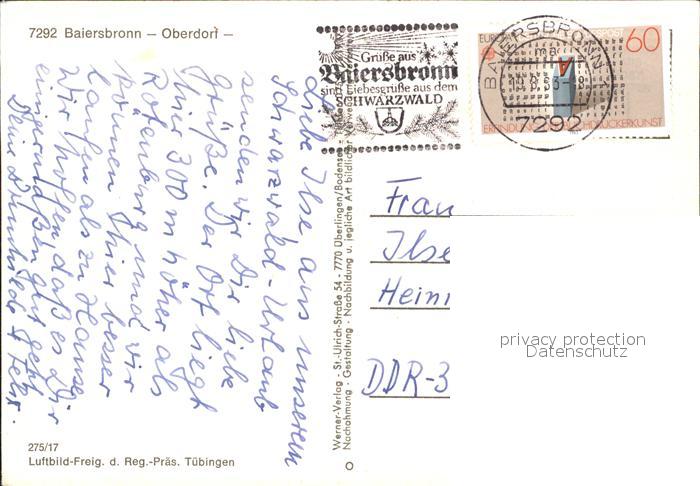 7292 Baiersbronn – Oberdorf –
Grüße aus
Baiersbronn
sind Liebesgrüße aus dem
SCHWARZWALD
BAIERSBRONN
ma
7292
60
ERFINDUNG
CHDRUCKERKUNST
Liebe Ilse, aus unserem
Schwarzwald-Urlaub
senden wir Dir liebe
Grüße. Der Ort liegt
hier 300 m höher als
Rotenburg und wir
können hier besser
laufen als zu Hause.
Wir hoffen, daß es Dir
einigermaßen gut geht
Werner-Verlag - St.-Ulrich-Straße 54 - 7770 Überlingen/Bodensee
Nachahmung - Gestaltung - Nachbildung u. jegliche Art bildlicher
Frau
Ilse
DDR-3
privacy protection
Datenschutz
275/17
Luftbild-Freig. d. Reg.-Präs. Tübingen